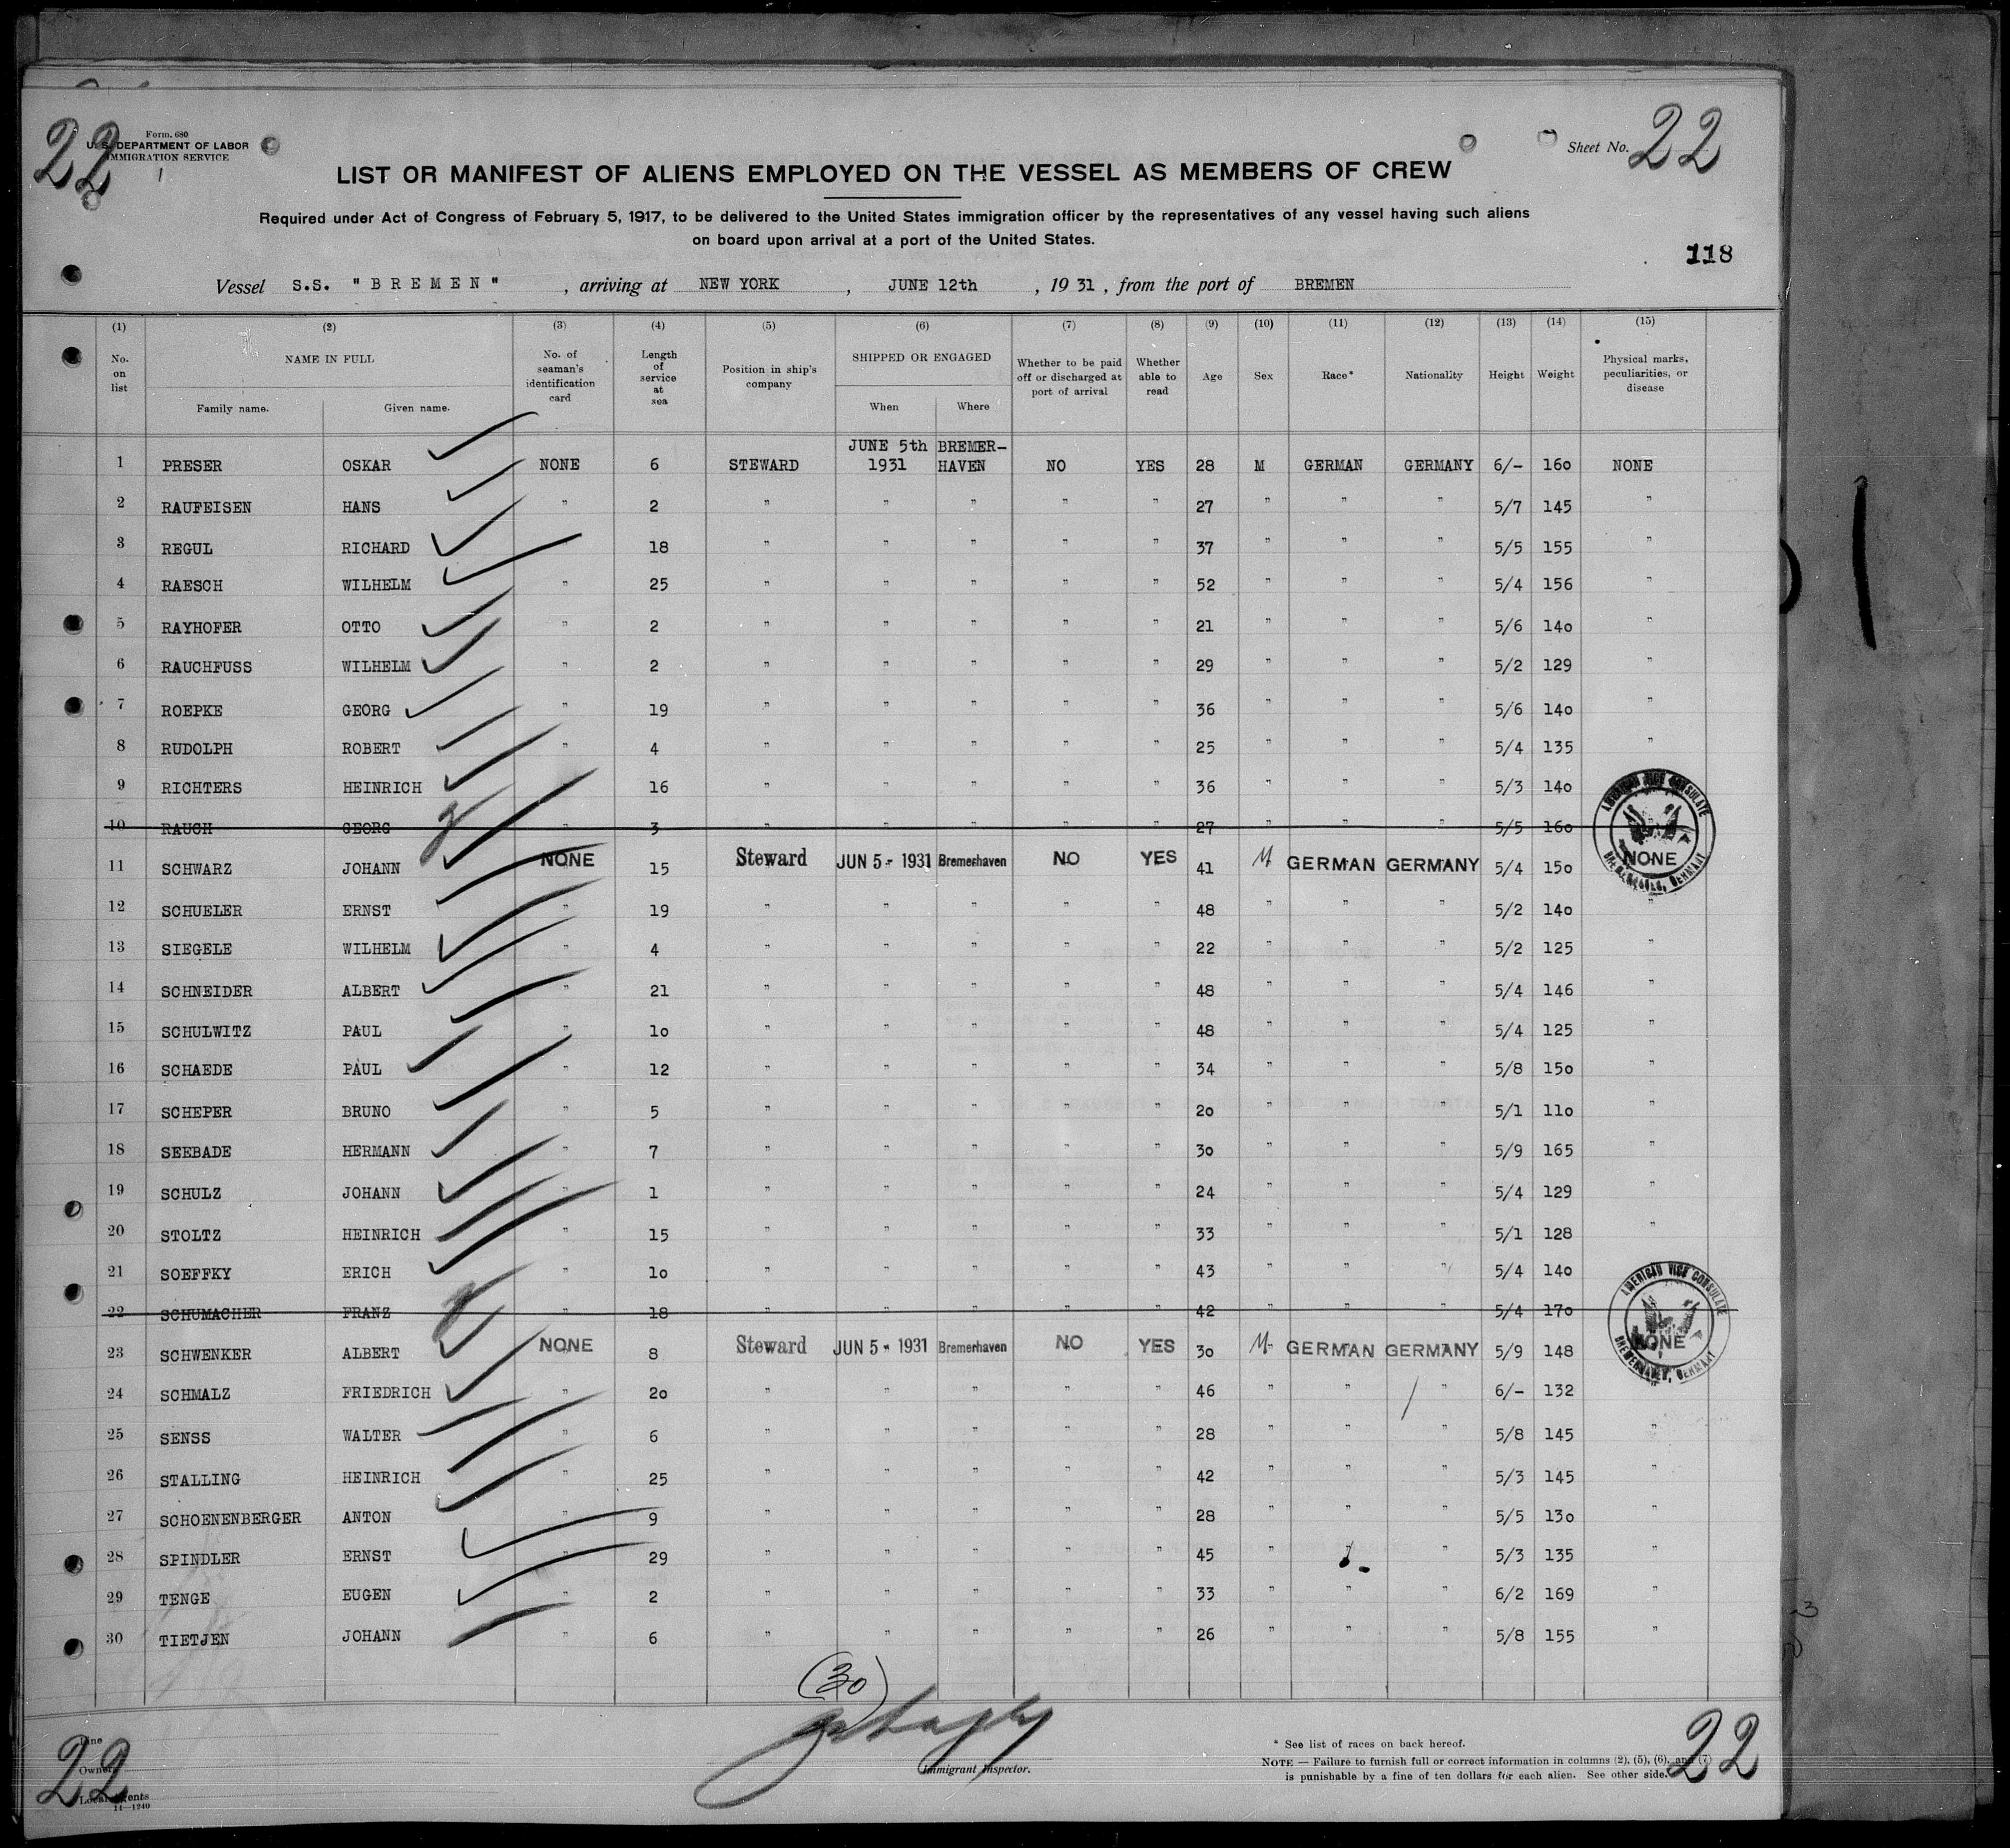 22
Form. 680
U. S. DEPARTMENT OF LABOR
IMMIGRATION SERVICE
Sheet No. 22
LIST OR MANIFEST OF ALIENS EMPLOYED ON THE VESSEL AS MEMBERS OF CREW
Required under Act of Congress of February 5, 1917, to be delivered to the United States immigration officer by the representatives of any vessel having such aliens
on board upon arrival at a port of the United States.
118
Vessel S.S. "BREMEN" , arriving at NEW YORK , JUNE 12th , 1931 , from the port of BREMEN
(1) (2) (3) (4) (5) (6) (7) (8) (9) (10) (11) (12) (13) (14) (15)
No. on list NAME IN FULL Family name. Given name. No. of seaman's identification card Length of service at sea Position in ship's company SHIPPED OR ENGAGED When Where Whether to be paid off or discharged at port of arrival Whether able to read Age Sex Race* Nationality Height Weight Physical marks, peculiarities, or disease
1 PRESER OSKAR NONE 6 STEWARD JUNE 5th 1931 BREMER-HAVEN NO YES 28 M GERMAN GERMANY 6/- 160 NONE
2 RAUFEISEN HANS " 2 " " " " " 27 " " " 5/7 145 "
3 REGUL RICHARD " 18 " " " " " 37 " " " 5/5 155 "
4 RAESCH WILHELM " 25 " " " " " 52 " " " 5/4 156 "
5 RAYHOFER OTTO " 2 " " " " " 21 " " " 5/6 140 "
6 RAUCHFUSS WILHELM " 2 " " " " " 29 " " " 5/2 129 "
7 ROEPKE GEORG " 19 " " " " " 36 " " " 5/6 140 "
8 RUDOLPH ROBERT " 4 " " " " " 25 " " " 5/4 135 "
9 RICHTERS HEINRICH " 16 " " " " " 36 " " " 5/3 140
10 RAUCH GEORG " 3 " " " " " 27 " " " 5/5 160
AMERICAN VICE CONSULATE
BREMERHAVEN, GERMANY
11 SCHWARZ JOHANN NONE 15 Steward JUN 5- 1931 Bremerhaven NO YES 41 M GERMAN GERMANY 5/4 150 NONE
12 SCHUELER ERNST " 19 " " " " " 48 " " " 5/2 140 "
13 SIEGELE WILHELM " 4 " " " " " 22 " " " 5/2 125 "
14 SCHNEIDER ALBERT " 21 " " " " " 48 " " " 5/4 146 "
15 SCHULWITZ PAUL " 10 " " " " " 48 " " " 5/4 125 "
16 SCHAEDE PAUL " 12 " " " " " 34 " " " 5/8 150 "
17 SCHEPER BRUNO " 5 " " " " " 20 " " " 5/1 110 "
18 SEEBADE HERMANN " 7 " " " " " 30 " " " 5/9 165 "
19 SCHULZ JOHANN " 1 " " " " " 24 " " " 5/4 129 "
20 STOLTZ HEINRICH " 15 " " " " " 33 " " " 5/1 128 "
21 SOEFFKY ERICH " 10 " " " " " 43 " " " 5/4 140
22 SCHUMACHER FRANZ " 18 " " " " " 42 " " " 5/4 170
AMERICAN VICE CONSULATE
BREMERHAVEN, GERMANY
23 SCHWENKER ALBERT NONE 8 Steward JUN 5- 1931 Bremerhaven NO YES 30 M GERMAN GERMANY 5/9 148 NONE
24 SCHMALZ FRIEDRICH " 20 " " " " " 46 " " " 6/- 132 "
25 SENSS WALTER " 6 " " " " " 28 " " " 5/8 145 "
26 STALLING HEINRICH " 25 " " " " " 42 " " " 5/3 145 "
27 SCHOENENBERGER ANTON " 9 " " " " " 28 " " " 5/5 130 "
28 SPINDLER ERNST " 29 " " " " " 45 " " " 5/3 135 "
29 TENGE EUGEN " 2 " " " " " 33 " " " 6/2 169 "
30 TIETJEN JOHANN " 6 " " " " " 26 " " " 5/8 155 "
(30)
Immigrant Inspector.
* See list of races on back hereof.
NOTE — Failure to furnish full or correct information in columns (2), (5), (6), and (7)
is punishable by a fine of ten dollars for each alien. See other side.
22
Line
Owner
Local Agents
14—1240
22